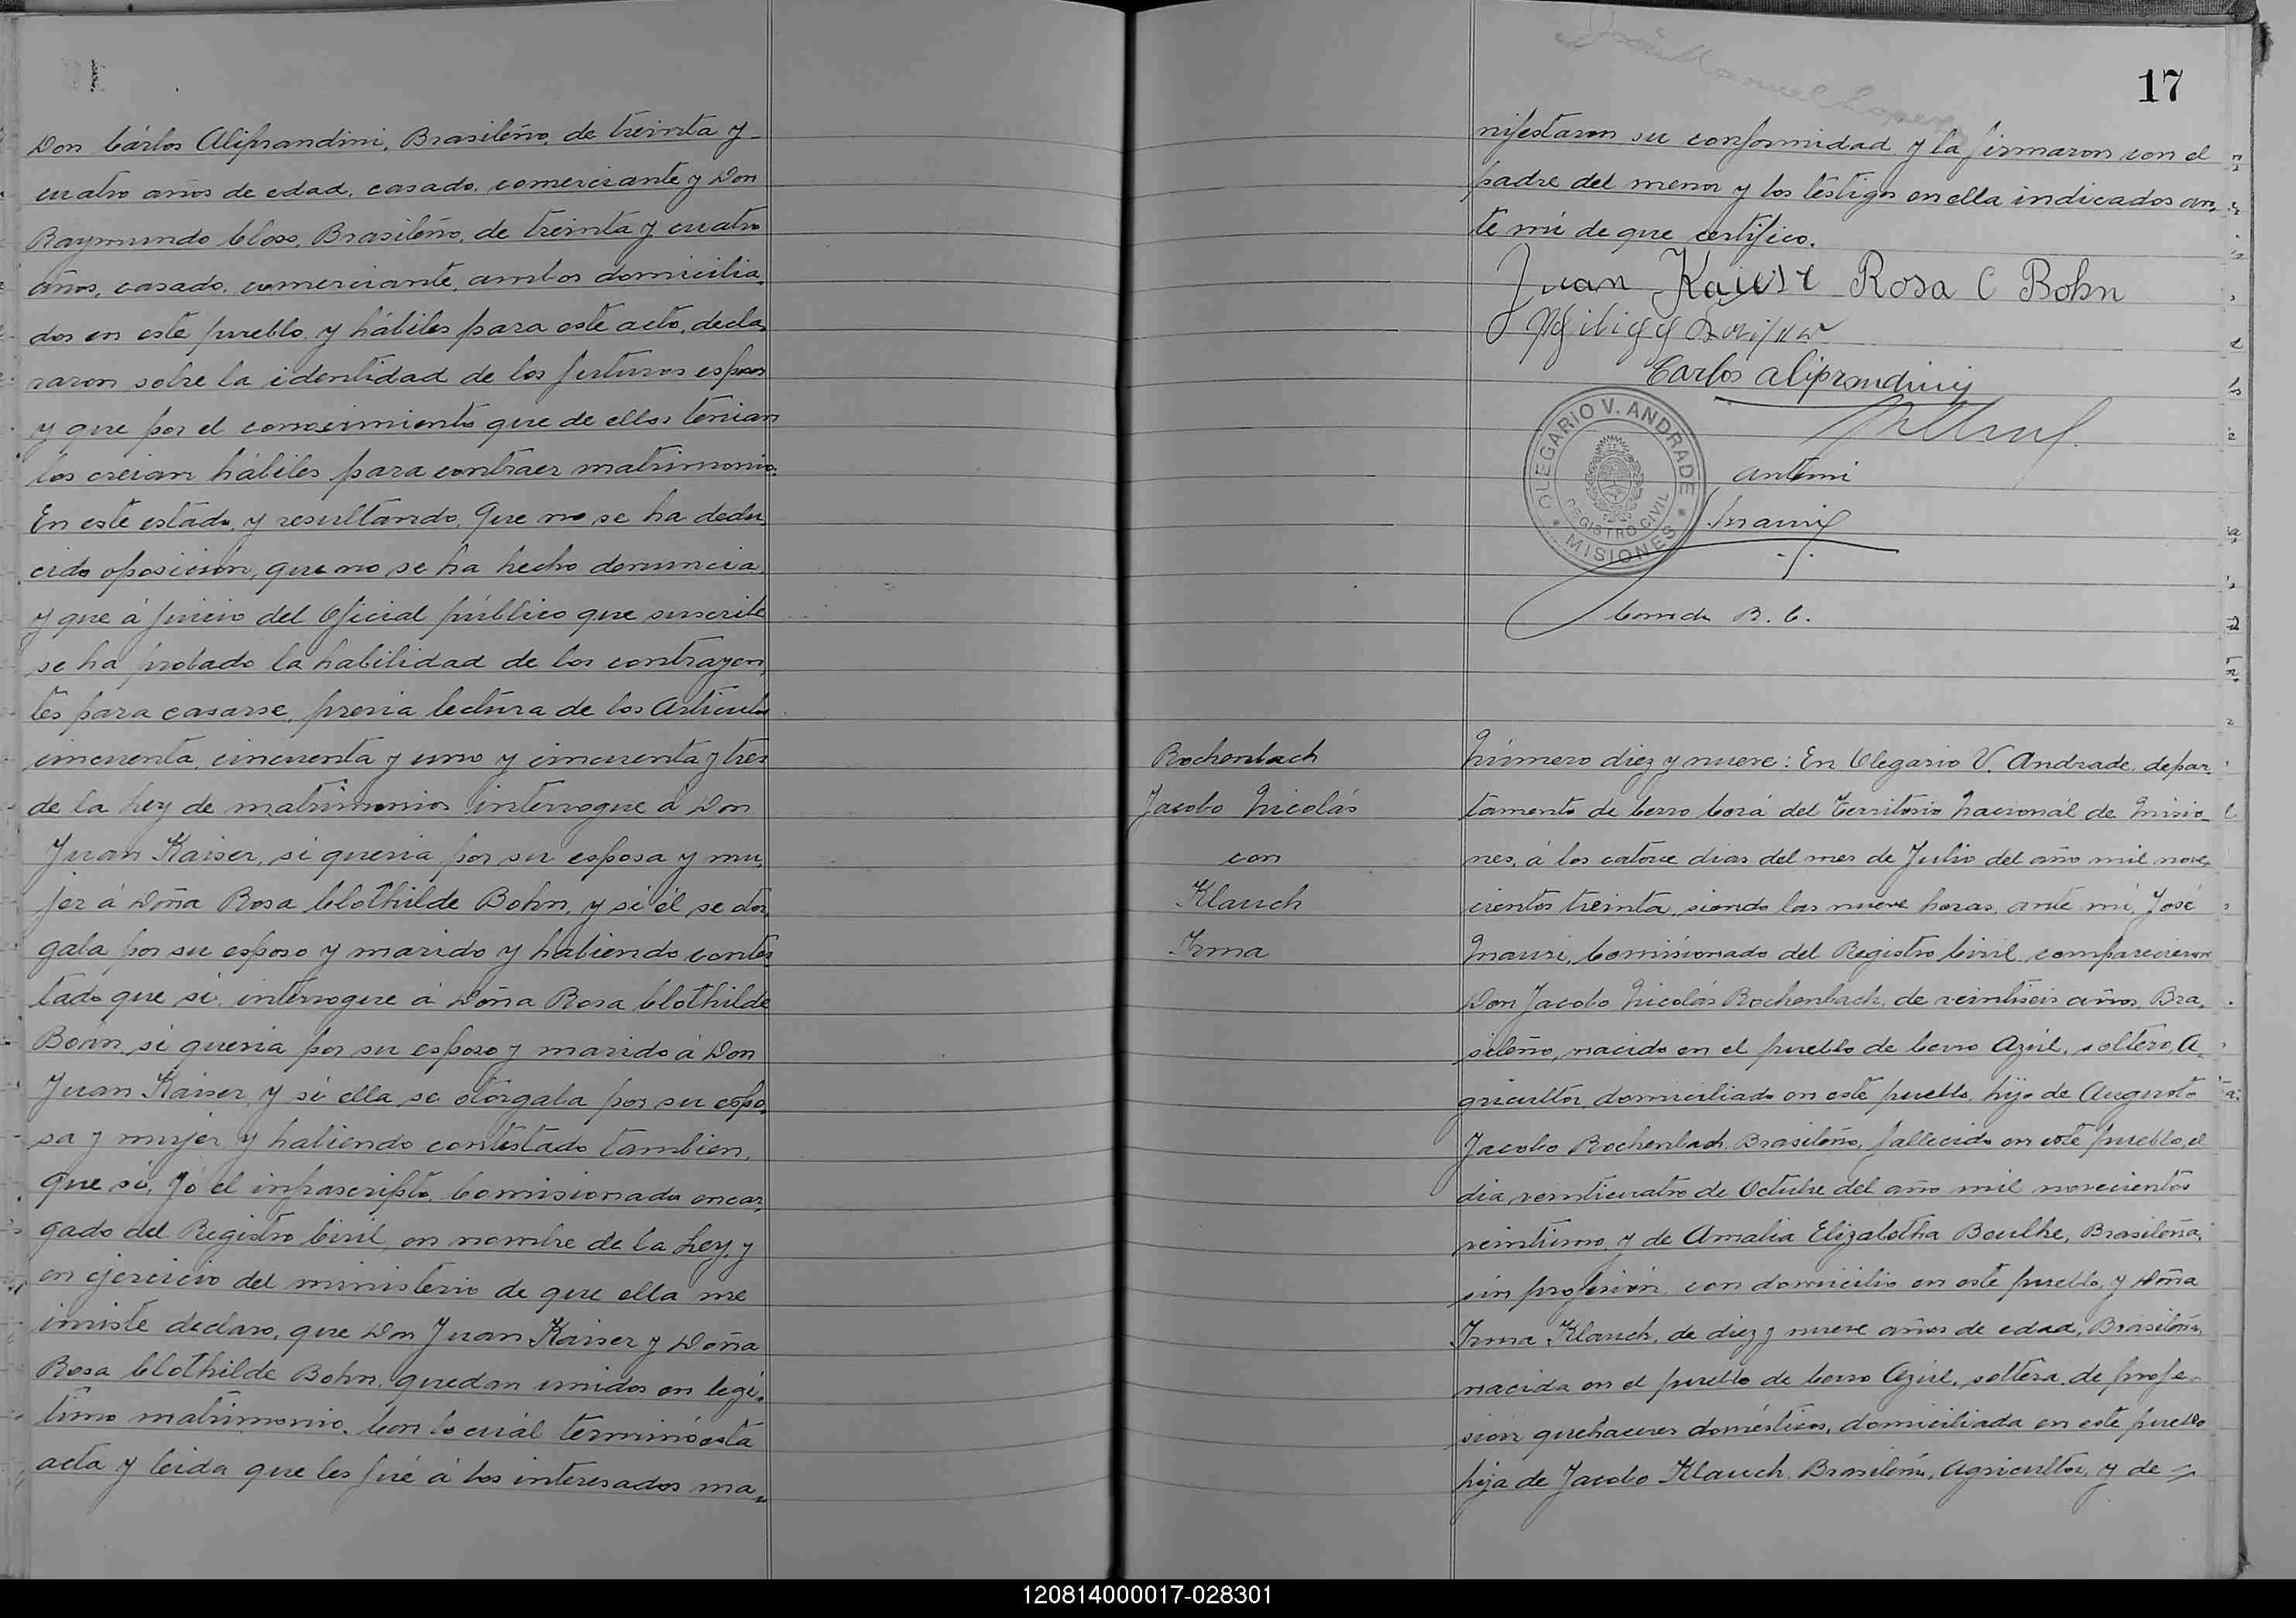 Don Cárlos Aliprandini, Brasileño, de treinta y
cuatro años de edad, casado, comerciante y Don
Raymundo Closs, Brasileño, de treinta y cuatro
años, casado, comerciante, ambos domicilia
dos en este pueblo, y hábiles para este acto, decla
raron sobre la identidad de los futuros esposos
y que por el conocimiento que de ellos tenian
los creian hábiles para contraer matrimonio.
En este estado, y resultando, Que no se ha dedu
cido oposición, que no se ha hecho denuncia,
y que á juicio del Oficial público que suscribe
se ha probado la habilidad de los contrayen
tes para casarse, previa lectura de los Articulos
cincuenta, cincuenta y uno y cincuenta y tres
de la Ley de matrimonios interrogue á Don
Juan Kaiser, si queria por su esposa y mu
jer á Doña Rosa Clothilde Bohn, y si él se otor
gaba por su esposo y marido y habiendo contes
tado que si, interrogue á Doña Rosa Clothilde
Bohn si queria por su esposo y marido á Don
Juan Kaiser, y si ella se otorgaba por su espo
sa y mujer y habiendo contestado tambien,
que si, Yó el infrascripto, Comisionado encar
gado del Registro Civil, en nombre de la Ley, y
en ejercicio del ministerio de que ella me
inviste declaro, que Don Juan Kaiser y Doña
Rosa Clothilde Bohn, quedan unidos en legi
timo matrimonio. Con lo cuál terminó esta
acta y leida que les fué á los interesados ma
17
nifestaron su conformidad y la firmaron con el
padre del menor y los testigos en ella indicados an
te mi de que certifico.
Juan Kaiser Rosa C Bohn
Carlos Aliprandini
OLEGARIO V. ANDRADE
REGISTRO CIVIL
MISIONES
Ante mi
Mauri
Comdo R. C.
Rochenbach
Jacobo Nicolás
con
Klauch
Irma
Número diez y nueve: En Olegario V. Andrade, depar
tamento de Cerro Corá del Territorio Nacionál de Misio
nes, á los catorce dias del mes de Julio del año mil nove
cientos treinta, siendo las nueve horas, ante mi, José
Mauri, Comisionado del Registro Civil, comparecieron
Don Jacobo Nicolás Rochenbach, de veintiseis años, Bra
sileño, nacido en el pueblo de Cerro Azúl, soltero, A
gricultor, domiciliado en este pueblo, hijo de Augusto
Jacobo Rochenbach, Brasileño, fallecido en este pueblo, el
dia veinticuatro de Octubre del año mil novecientos
veintiuno, y de Amalia Elizabetha Beulke, Brasileña,
sin profesión, con domicilio en este pueblo, y Doña
Irma Klauch, de diez y nueve años de edad, Brasileña,
nacida en el pueblo de Cerro Azúl, soltera, de profe
sión quehaceres domésticos, domiciliada en este pueblo
hija de Jacobo Klauch, Brasileño, Agricultor, y de
120814000017-028301